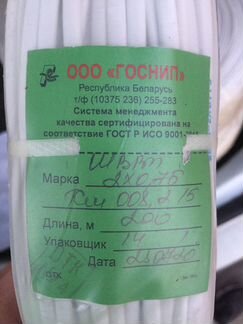 ООО «ГОСНИП»
Республика Беларусь
т/ф (10375 236) 255-283
Система менеджмента
качества сертифицирована на
соответствие ГОСТ Р ИСО 9001-
ШВВП
Марка 2х0,75
Длина, м 200
Упаковщик 14
Дата
ОТК
ОТК